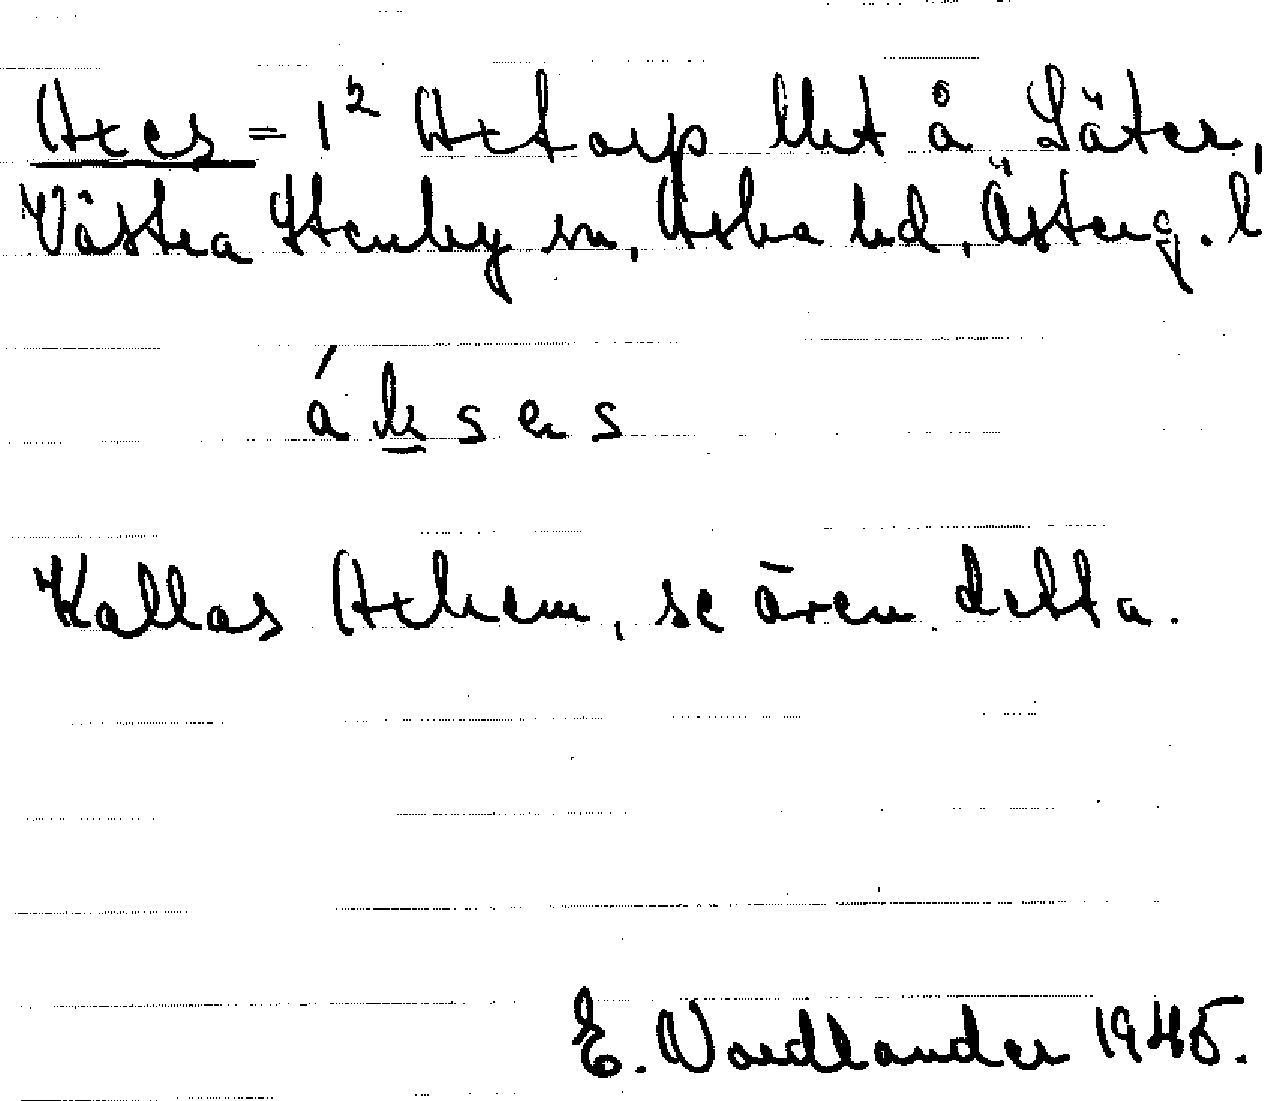 Axes = 1² Axtorp å Säter,
Västra Stenby sn, Aska hd, Österg. l
á k s e s
Kallas Axhem, se även detta.
E. Nordlander 1945.